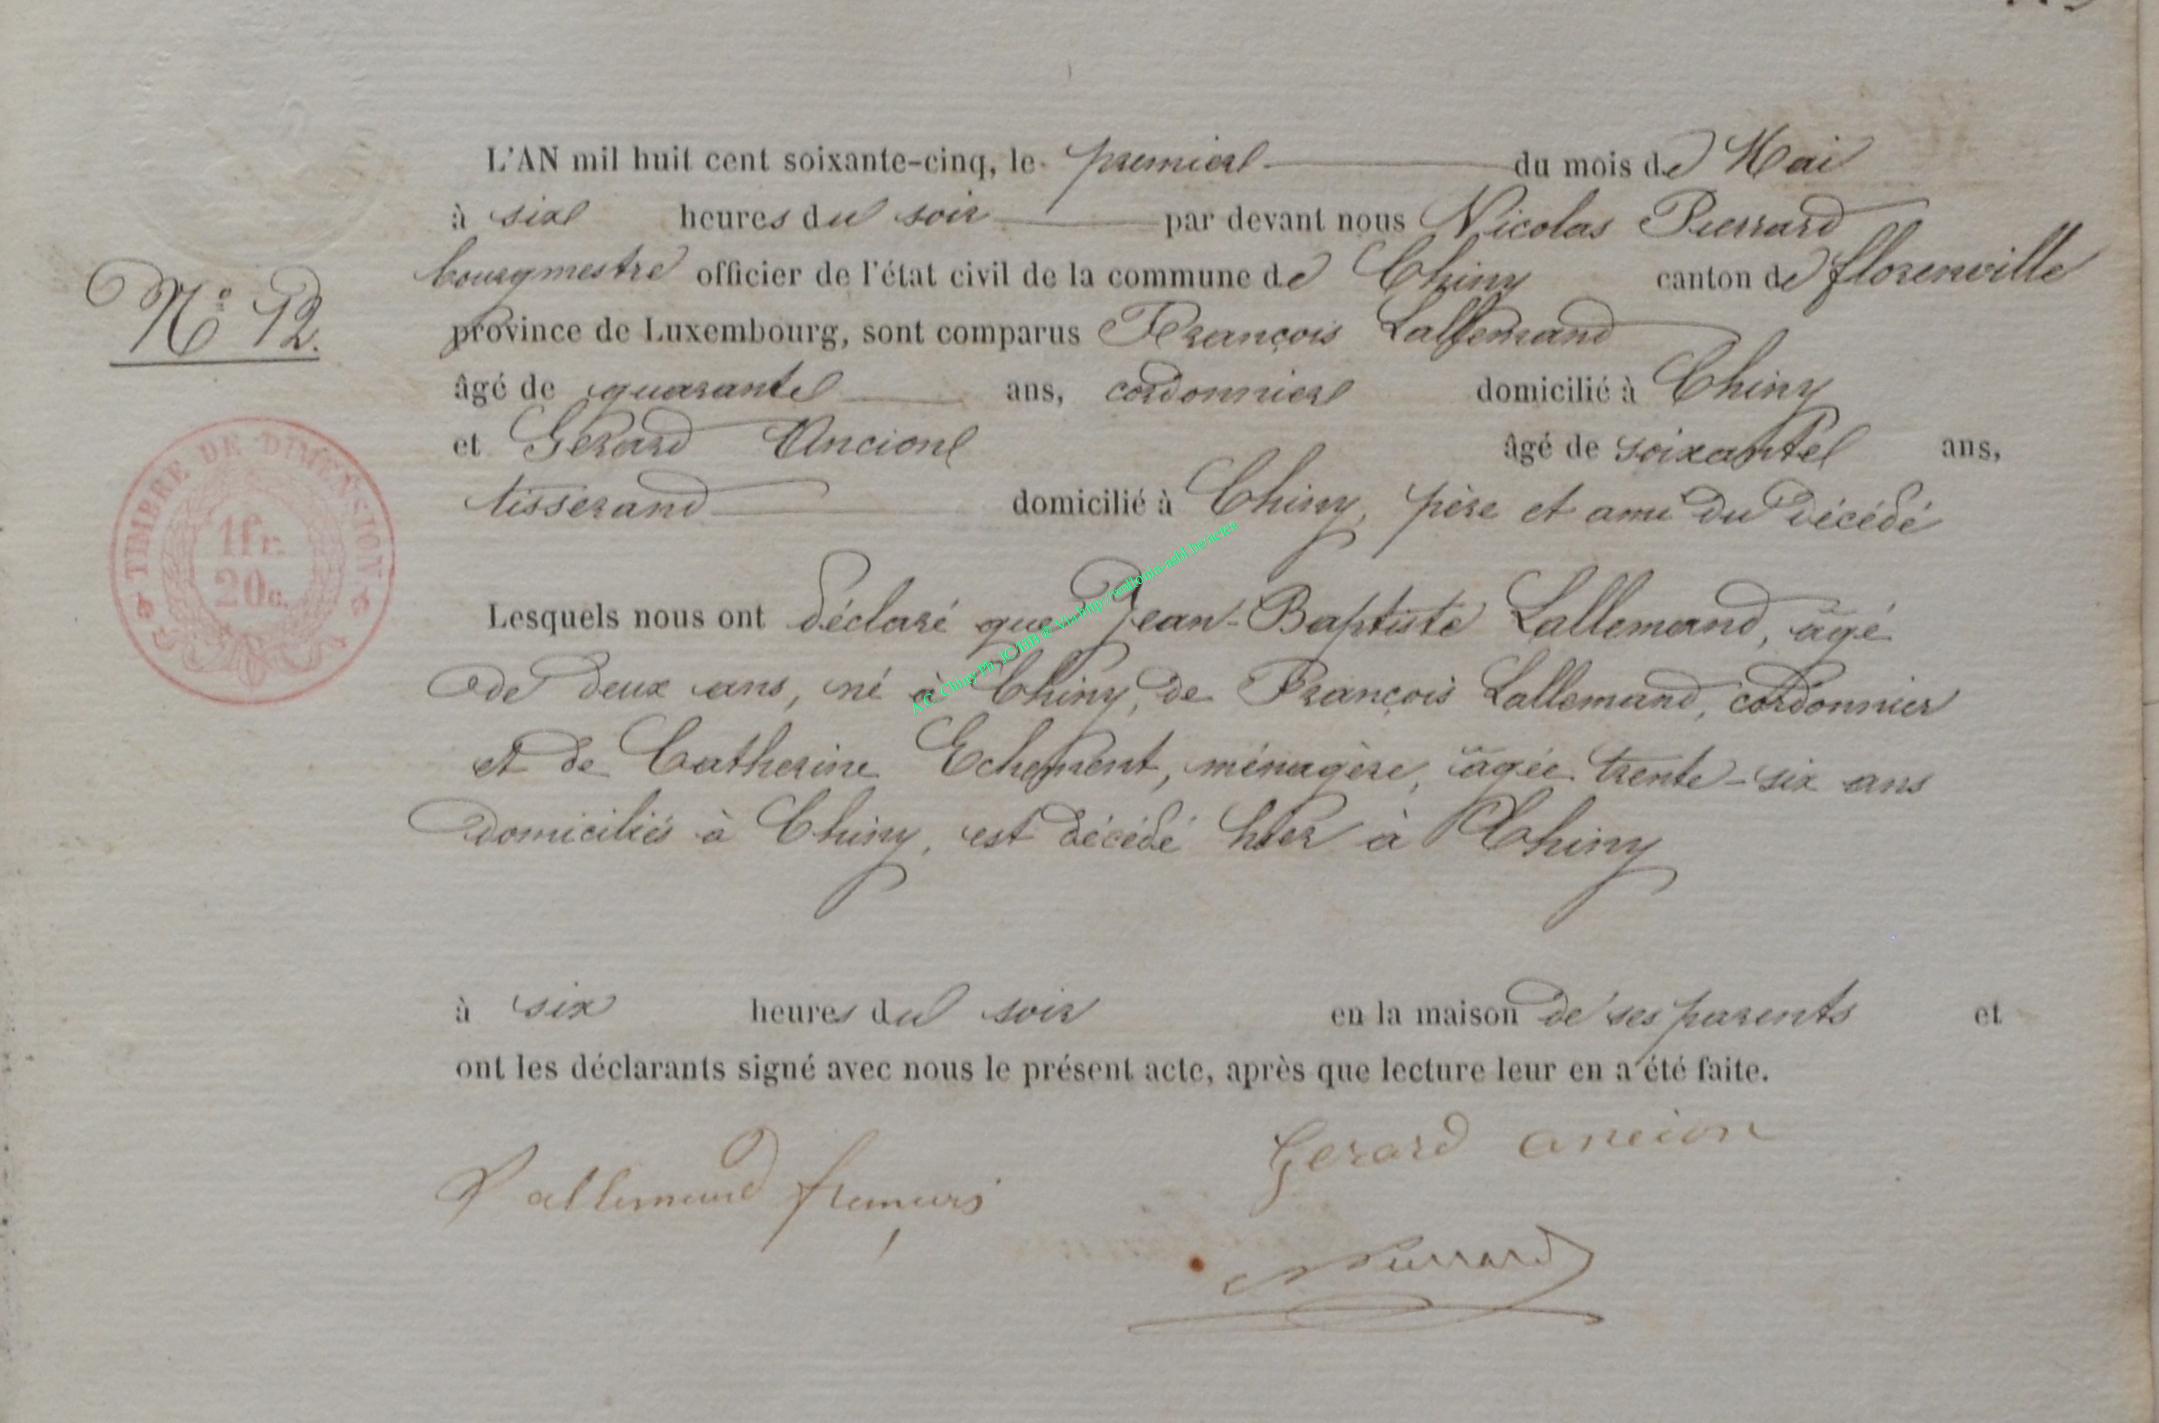 L'AN mil huit cent soixante-cinq, le premier du mois de Mai
à six heures du soir par devant nous Nicolas Pierrard
bourgmestre officier de l'état civil de la commune de Chiny canton de florenville
N° 12.
province de Luxembourg, sont comparus François Lallemand
âgé de quarante ans, cordonnier domicilié à Chiny
et Gérard Ancion âgé de soixante ans,
tisserand domicilié à Chiny, père et ami du décédé
TIMBRE DE DIMENSION
1fr.
20c.
Lesquels nous ont déclaré que Jean-Baptiste Lallemand, âgé
de deux ans, né à Chiny, de François Lallemand, cordonnier
et de Catherine Echement, ménagère, âgée trente-six ans
domiciliés à Chiny, est décédé hier à Chiny
à six heures du soir en la maison de ses parents et
ont les déclarants signé avec nous le présent acte, après que lecture leur en a été faite.
Gerard ancion
Lallemand françois
NPierrard